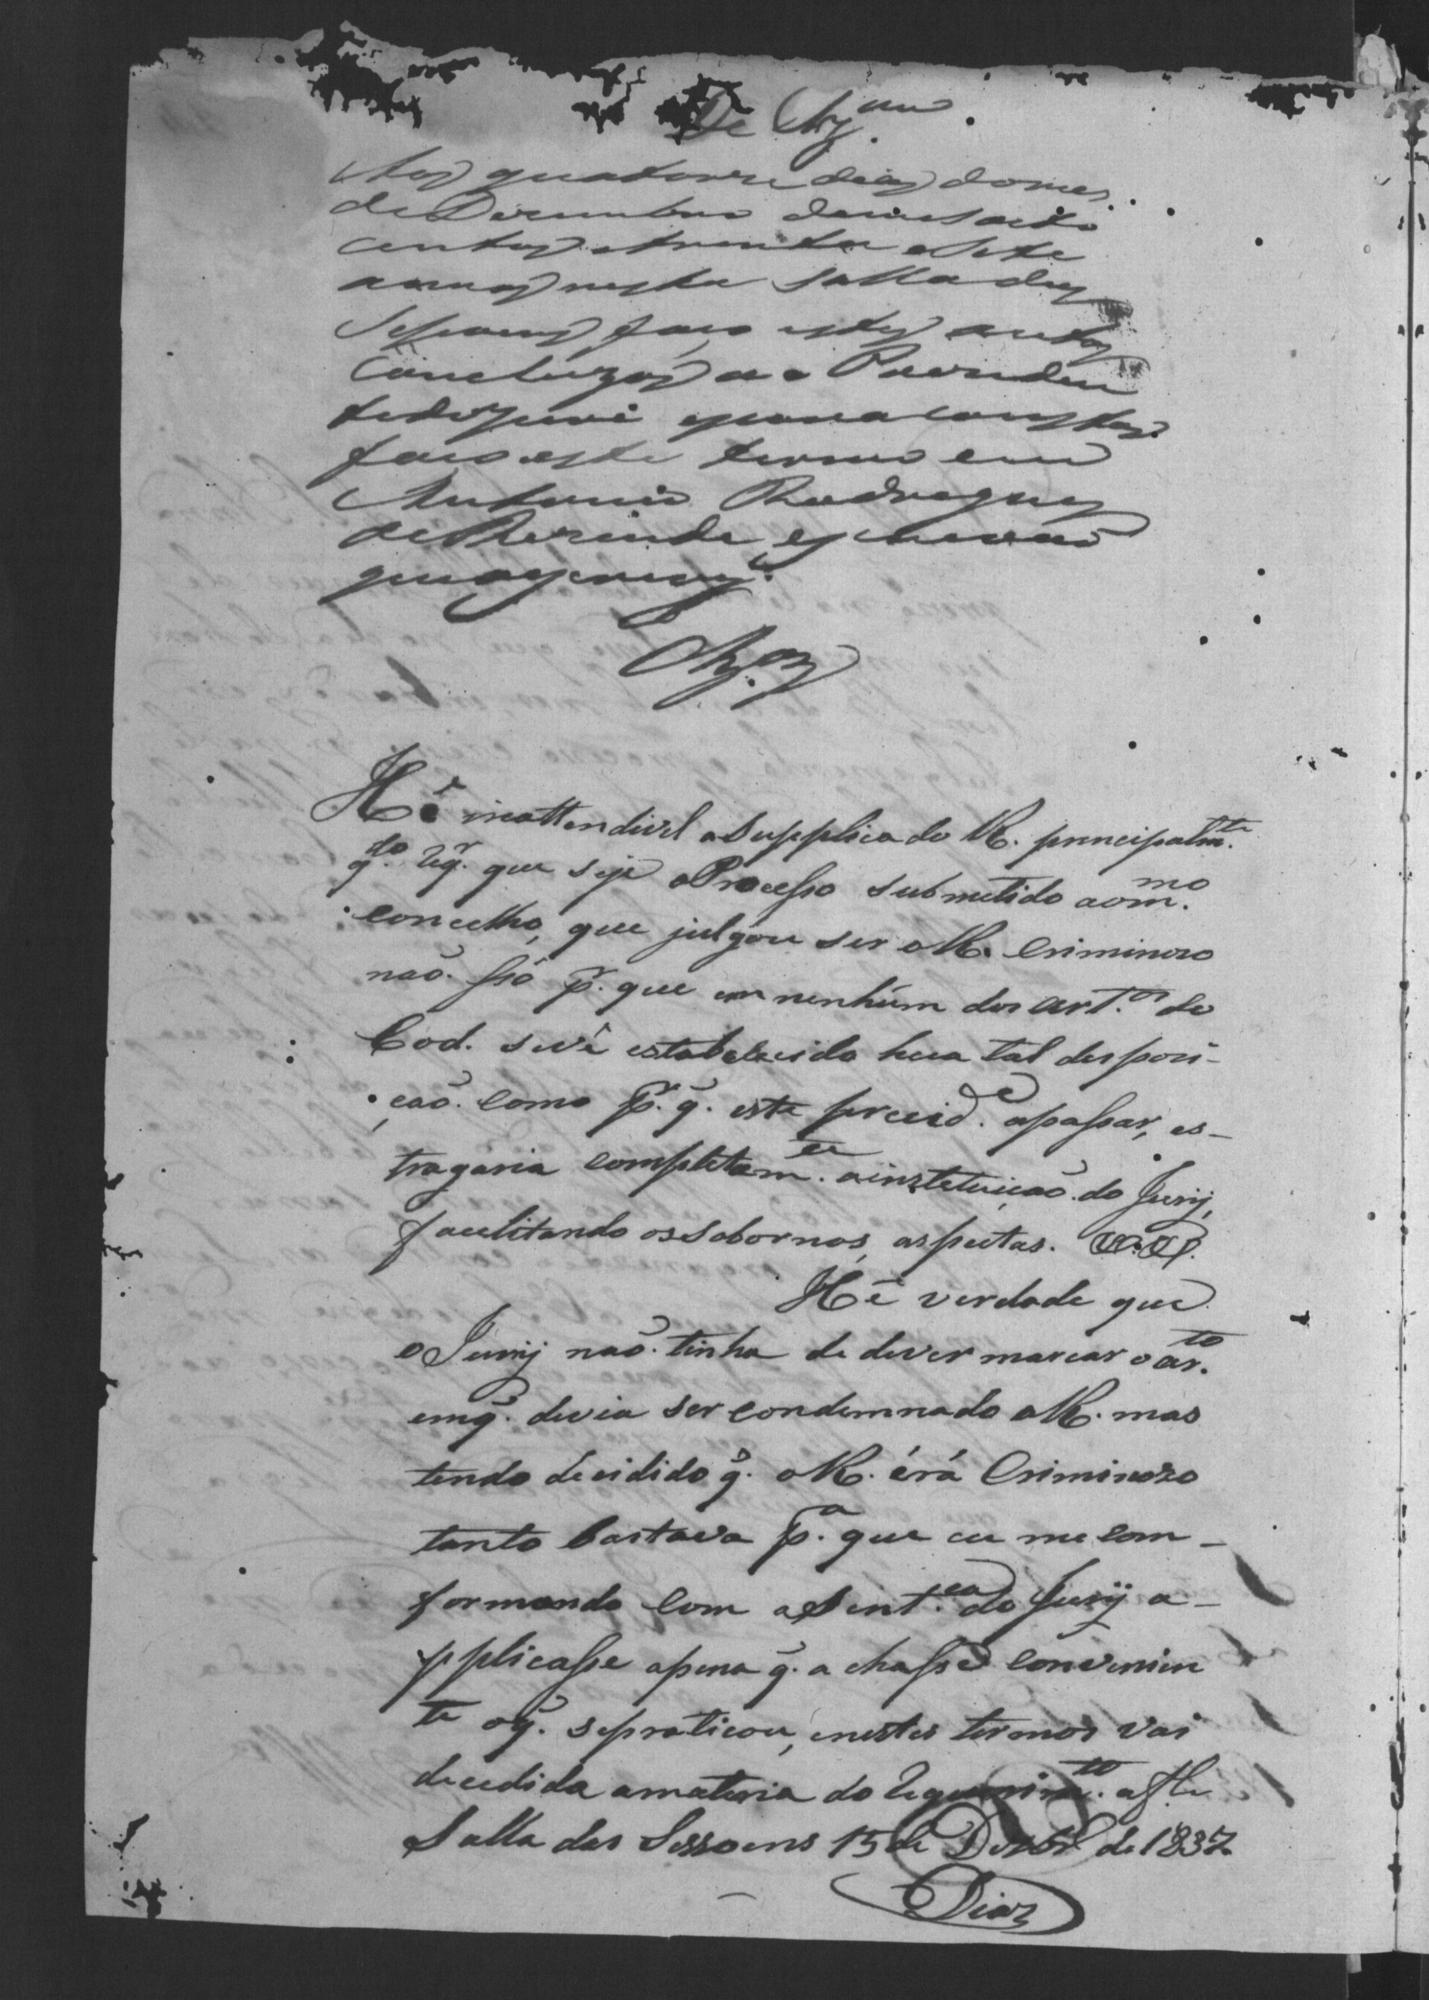 De Clz.am
Aos quatorze dias do mes
de Dezembro de mil oito
centos e trinta e sete
annos nesta Salla das
Sessoens faço estes autos
Concluzos ao Prezidem
te do Juri e para constar
faço este termo eu
Antonio Rodrigues
de Rezende escrivaõ
que escrevy
Clz.os
Hê inattendivel a Supplica do R. principalm.te
q.do rq.r que seja o Processo submetido ao m.mo
concelho, que julgou ser o R. Criminozo
naõ. ssó p.r que em nenhúm dos art.os do
Cod. se vê estabelecido hua tal desposi-
çaõ. como p.r q̃. este preced.e a passar, es-
tragaria completam.te a instetuiçaõ. do Jurij,
facelitando os sobornos, as peitas.
Hê verdade que
o Jurij naõ. tinha de dever marcar o ar.to
em q̃. devia ser condemnado o R. mas
tendo decidido q̃. o R. érá Criminozo
tanto bastava p.a que eu me com-
formando com a Sent.ca do Jurij a-
pplicasse a pena q̃. achasse convenien
te o q̃. se praticou, e nestes termos vai
decedida a materia do requerim.to a f
Salla das Sessoens 15 de Dezbr.o de 1837
Dias